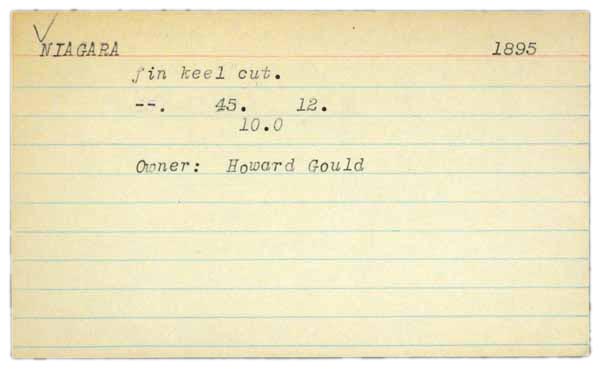 NIAGARA 1895
fin keel cut.
--. 45. 12.
10.0
Owner: Howard Gould